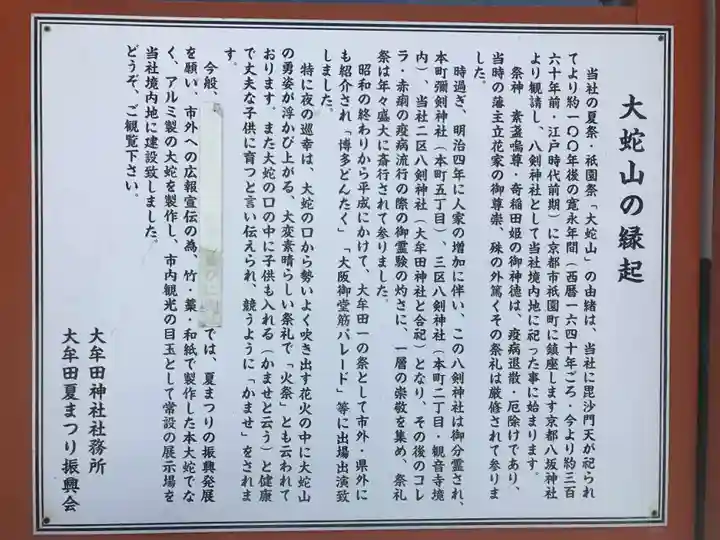 大蛇山の縁起
当社の夏祭・祇園祭「大蛇山」の由緒は、当社に毘沙門天が祀られ
てより約一〇〇年後の寛永年間（西暦一六四十年ごろ・今より約三百
六十年前・江戸時代前期）に京都市祇園町に鎮座します京都八坂神社
より観請し、八剣神社として当社境内地に祀った事に始まります。
祭神、素盞嗚尊・奇稲田姫の御神徳は、疫病退散・厄除けであり、
当時の藩主立花家の御尊崇、殊の外篤くその祭礼は厳修されて参りま
した。
時過ぎ、明治四年に人家の増加に伴い、この八剣神社は御分霊され、
本町彌剣神社（本町五丁目）、三区八剣神社（本町二丁目・観音寺境
内）、当社二区八剣神社（大牟田神社と合祀）となり、その後のコレ
ラ・赤痢の疫病流行の際の御霊験の灼さに、一層の崇敬を集め、祭礼
祭は年々盛大に斎行されて参りました。
昭和の終わりから平成にかけて、大牟田一の祭として市外・県外に
も紹介され「博多どんたく」「大阪御堂筋パレード」等に出場出演致
しました。
特に夜の巡幸は、大蛇の口から勢いよく吹き出す花火の中に大蛇山
の勇姿が浮かび上がる、大変素晴らしい祭礼で「火祭」とも云われて
おります。また大蛇の口の中に子供も入れる（かませと云う）と健康
で丈夫な子供に育つと言い伝えられ、競うように「かませ」をされま
す。
今般、では、夏まつりの振興発展
を願い、市外への広報宣伝の為、竹・藁・和紙で製作した本大蛇でな
く、アルミ製の大蛇を製作し、市内観光の目玉として常設の展示場を
当社境内地に建設致しました。
どうぞ、ご観覧下さい。
大牟田神社社務所
大牟田夏まつり振興会